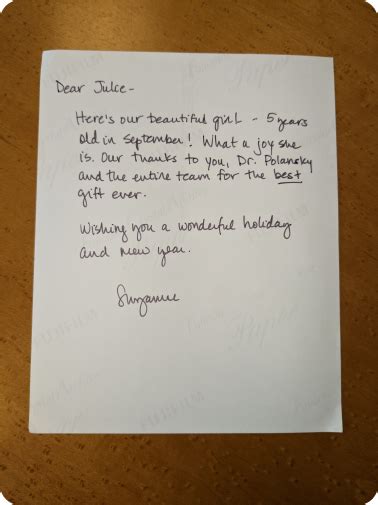 Dear Julce -
Here's our beautiful girl - 5 years
old in September! What a joy she
is. Our thanks to you, Dr. Polansky
and the entire team for the best
gift ever.
Wishing you a wonderful holiday
and new year.
Suzanne